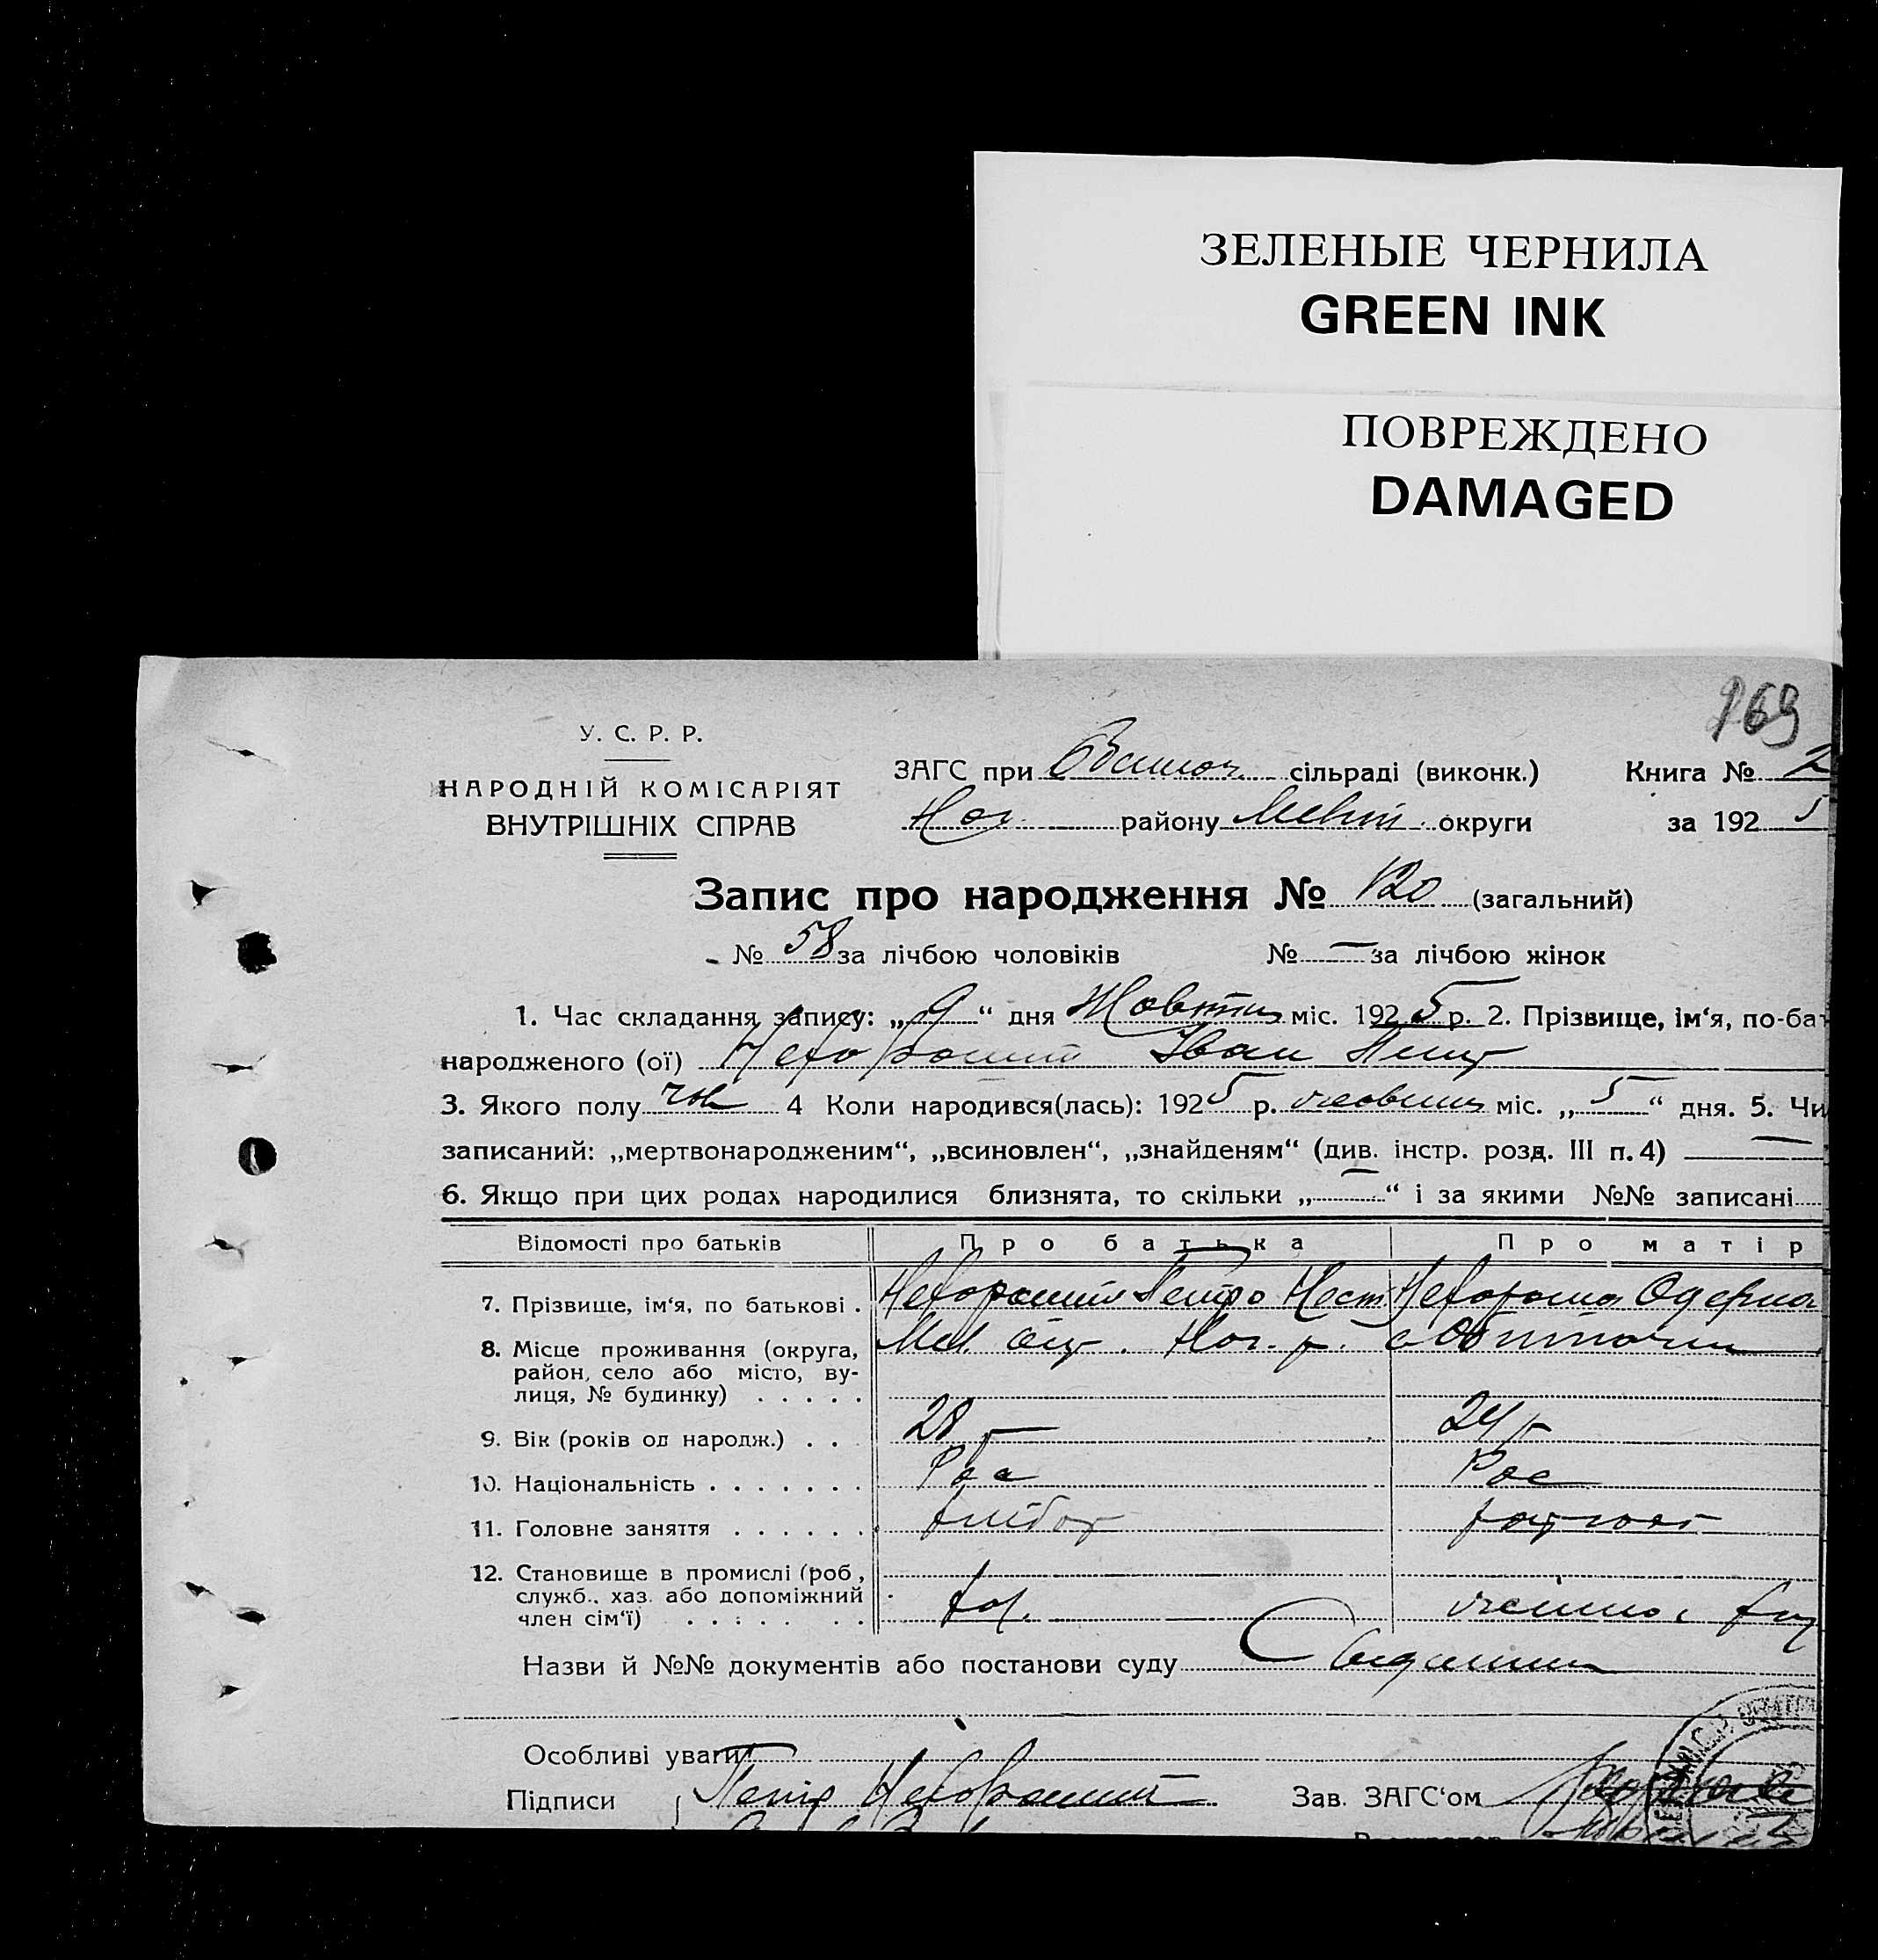 ЗЕЛЕНЫЕ ЧЕРНИЛА
GREEN INK
ПОВРЕЖДЕНО
DAMAGED
169
У. С. Р. Р.
НАРОДНІЙ КОМІСАРІЯТ
ВНУТРІШНІХ СПРАВ
ЗАГС при сільраді (виконк.) Книга № 2
Ног. району Меліт. округи за 1925
Запис про народження № 120 (загальний)
№ 58 за лічбою чоловіків № — за лічбою жінок
1. Час складання запису: „9“ дня Жовтня міс. 1925 р. 2. Прізвище, ім‘я, по-бат
народженого (ої) Нехороший Іван Петр
3. Якого полу чол 4 Коли народився(лась): 1925 р. червня міс. „5“ дня. 5. Чи
записаний: „мертвонародженим“, „всиновлен“, „знайденям“ (див. інстр. розд. III п. 4) —
6. Якщо при цих родах народилися близнята, то скільки „—“ і за якими №№ записані
Відомості про батьків Про батька Про матір
7. Прізвище, ім‘я, по батькові . Нехороший Петро Нест Нехороша
8. Місце проживання (округа, Мел. окр. Ног. р. с Обиточни
район, село або місто, ву-
лиця, № будинку) . . . . .
9. Вік (років од народж.) . . 28 р 24 р
10. Національність . . . . . . . Рос Рос
11. Головне заняття . . . . . . хлібор
12. Становище в промислі (роб.,
служб., хаз. або допоміжний
член сім‘ї) . . . . . . .
Назви й №№ документів або постанови суду
Особливі уваги:
Підписи Петр Нехороший Зав. ЗАГС‘ом